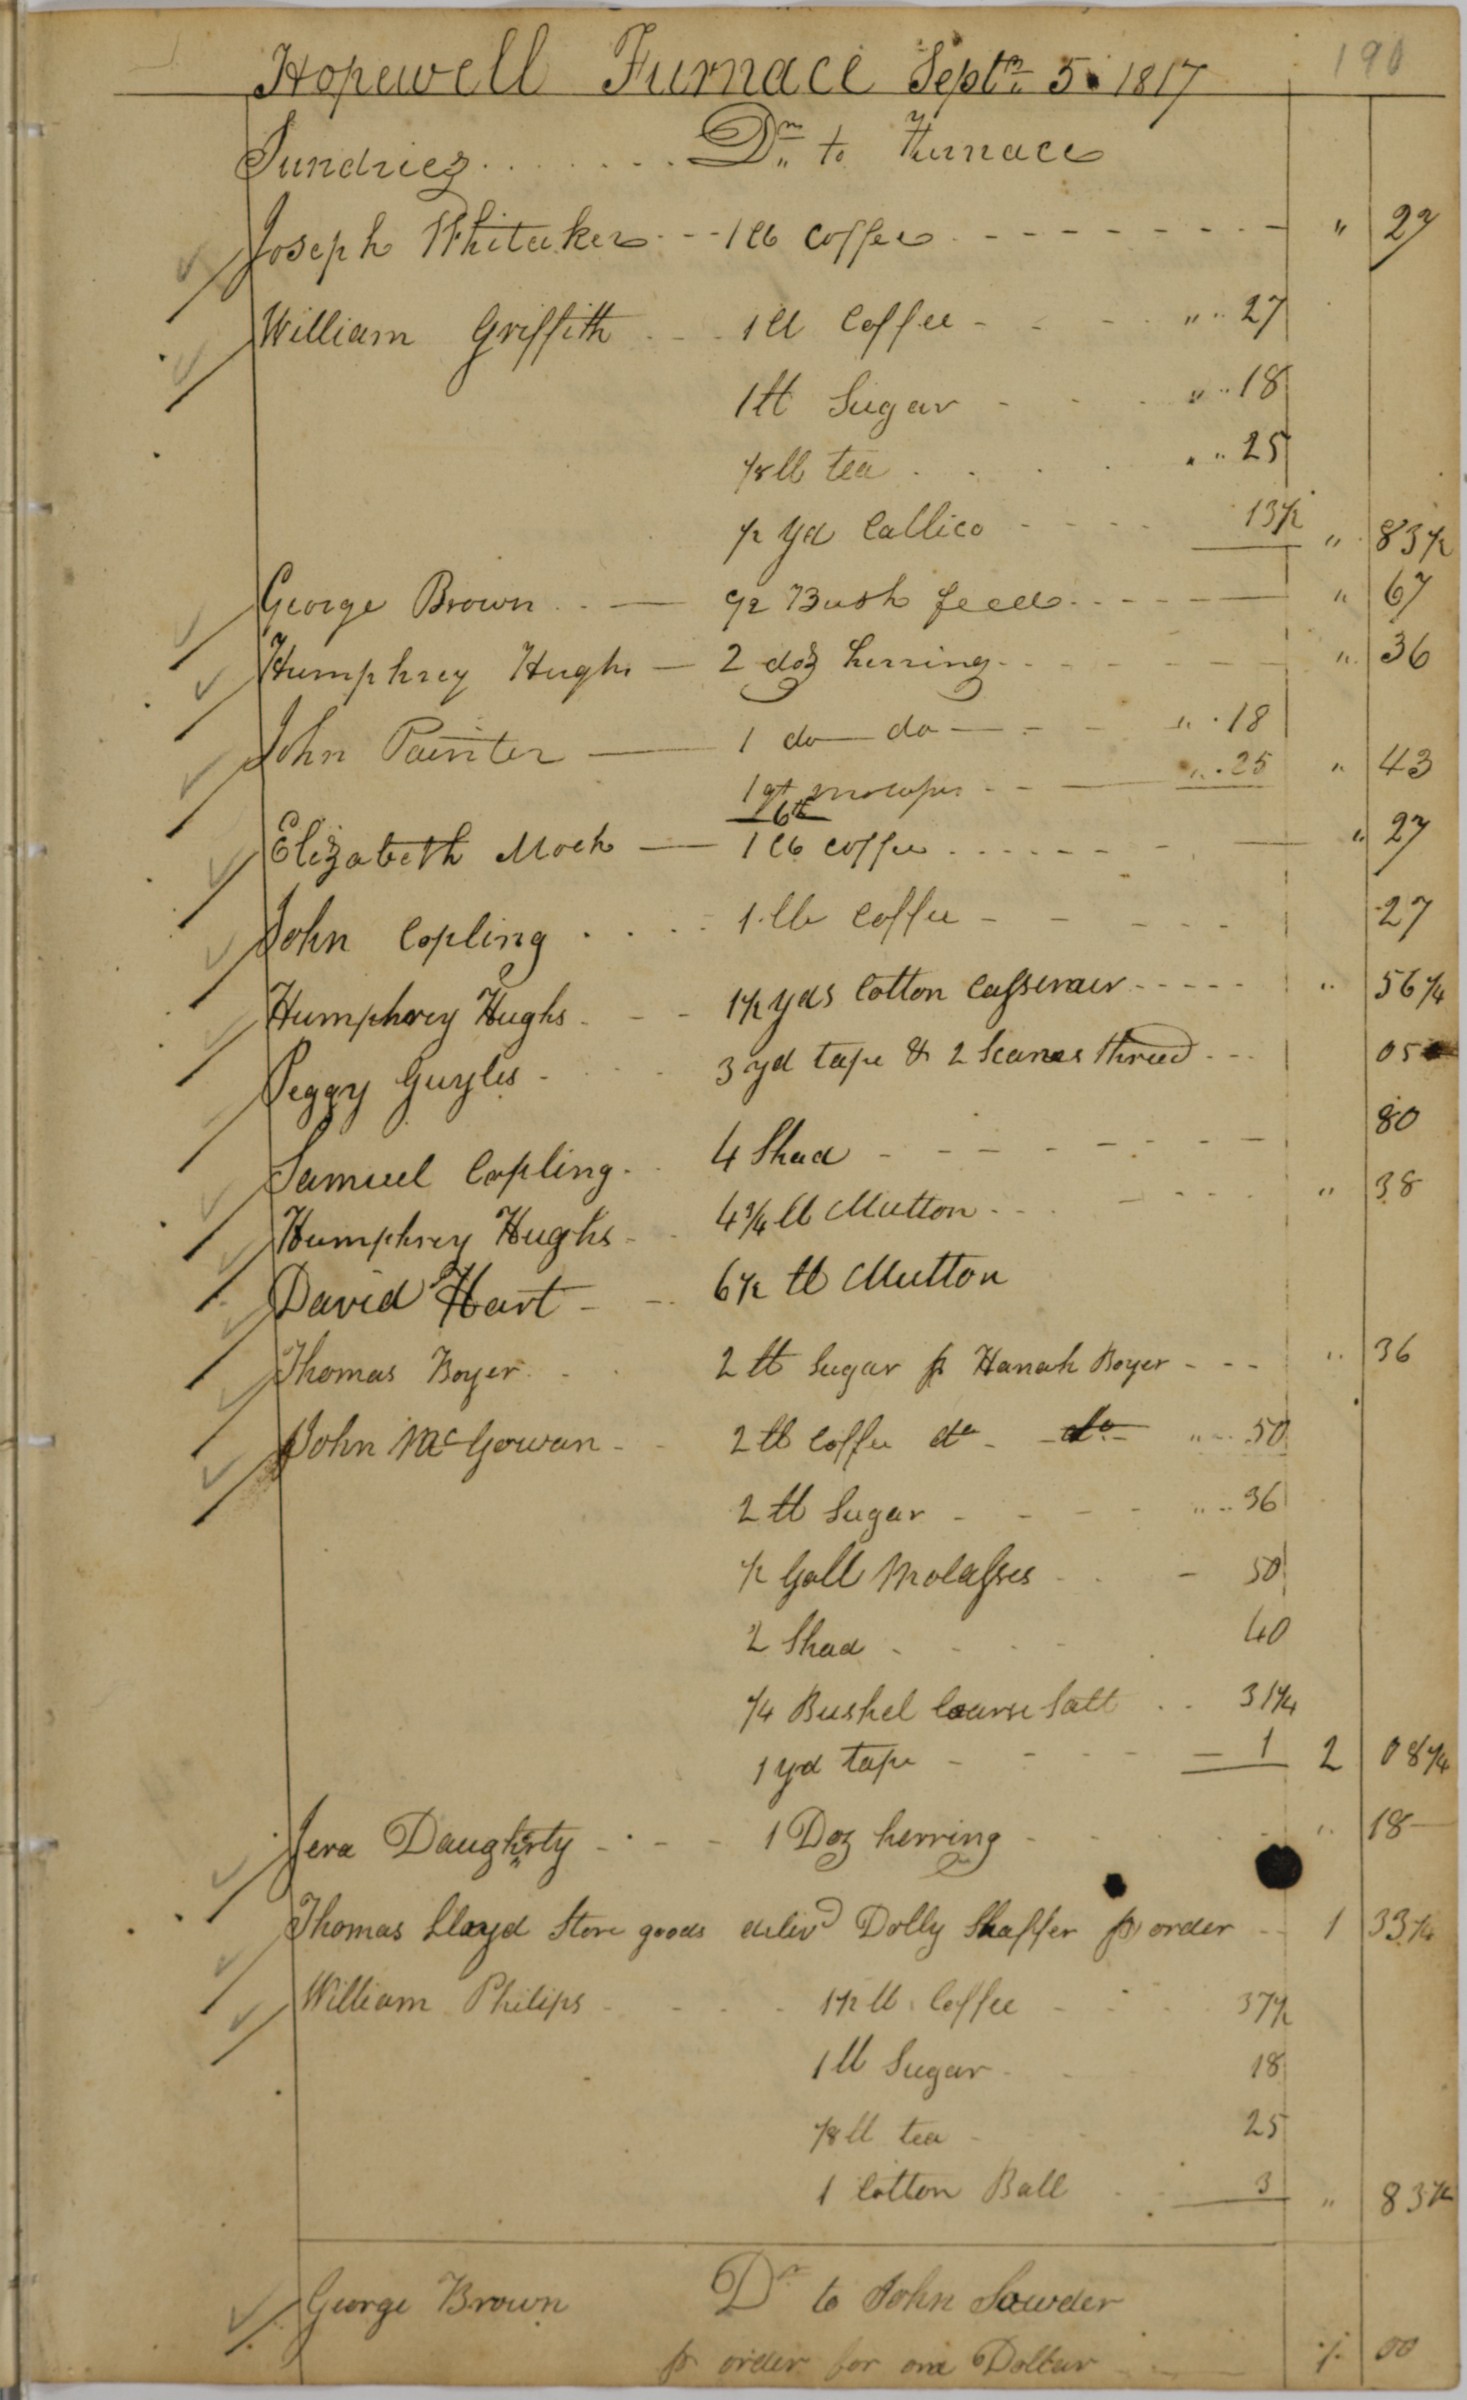 190
Hopewell Furnace Septr 5. 1817
Sundries ........ Drs to Furnace
Joseph Whitaker --- 1 lb coffee - - - - - - - - " 27
William Griffith - - - 1 lb Coffee - - - " " 27
1 lb Sugar - - - " " 18
1/8 lb tea . . . . " " 25
1/2 yd Callico - - - - 13 1/2 " 83 1/2
George Brown . . — Bush feed - - - - — " 67
Humphrey Hughs — 2 doz herring - - - - - - " 36
John Painter — 1 do do — - - - " " 18
1 qt molasses - - — " " 25 " 43
6th
Elizabeth Mock — 1 lb coffee . . . . - - - - — " 27
John Copling . . . . - 1 lb Coffee - - - - - 27
Humphrey Hughs - - - 1 1/2 yds Cotton Cassemer - - - - - " 56 1/4
Peggy Guyles - - - - 3 yd tape & 2 Scanes thread - - - 05
Samuel Copling - . 4 Shad - - - - - - - - 80
Humphrey Hughs - - 4 3/4 lb Mutton - - - - - - " 38
David Hart - - - 6 1/2 lb Mutton
Thomas Boyer - - . 2 lb Sugar pr Hanah Boyer - - - " 36
John McGowan - - 2 lb Coffee do - do " - - 50
2 lb Sugar - - - - " - 36
1/2 Gall Molasses - . - 50
2 Shad - - - - . 40
1/4 Bushel Coarse Salt . . 31 1/4
1 yd tape - - - - - 1 2 08 1/4
Jera Daugherty - . - - 1 Doz herring - - " 18
Thomas Lloyd Store goods delivd Dolly Shaffer pr order - - 1 33 1/4
William Philips - - - - 1 1/2 lb Coffee - - - 37 1/2
1 lb Sugar - - 18
1/8 lb tea - - 25
1 Cotton Ball . . 3 " 83 1/2
George Brown Dr to John Sowder
pr order for one Dollar - - - 1. 00